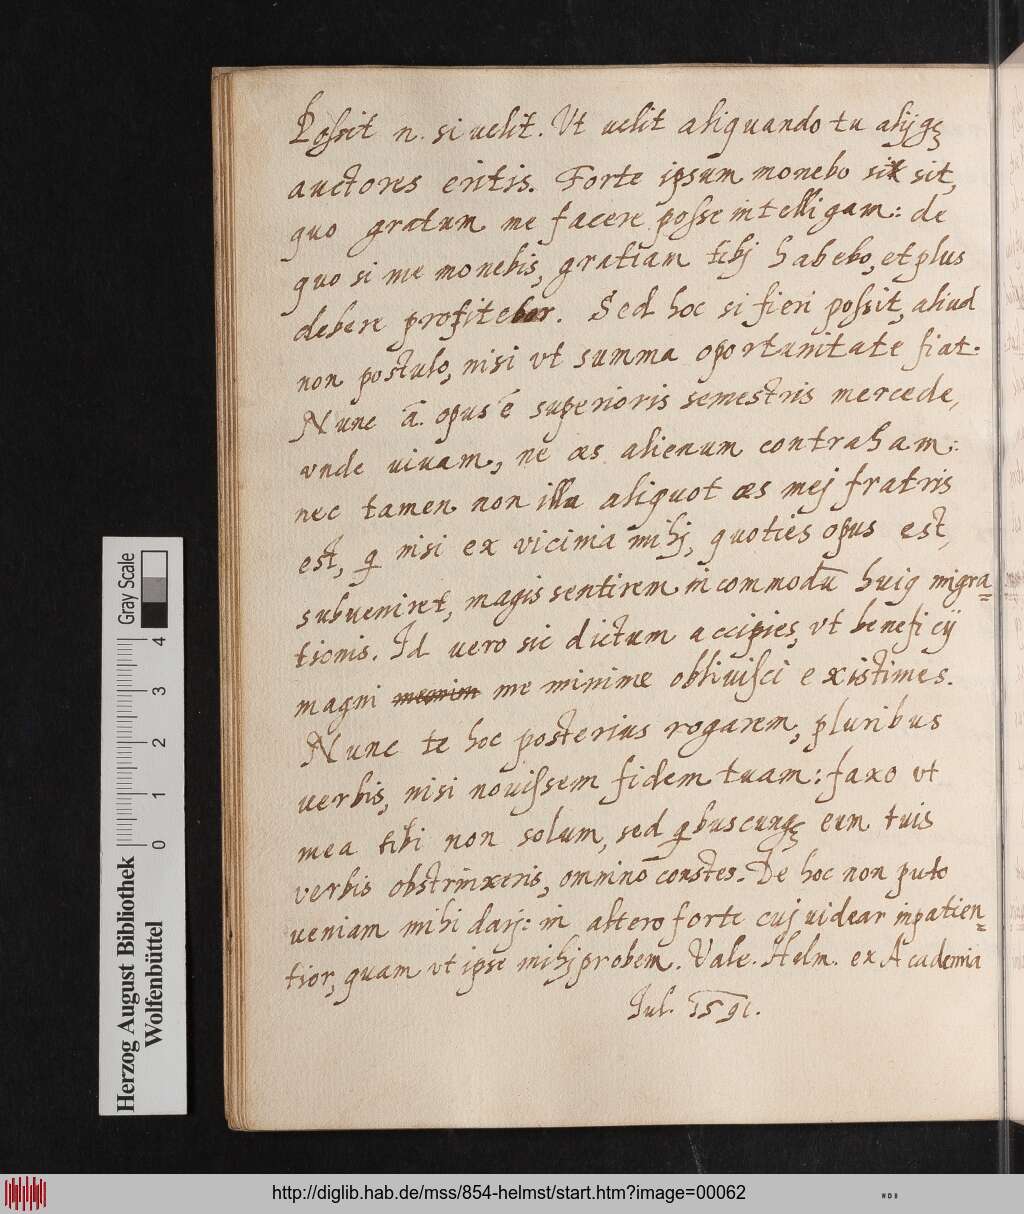 Possit n. si velit. Ut velit aliquando tu alijq3
auctores eritis. Forte ipsum monebo sit sit,
quo gratum me facere posse intelligam: de
quo si me monebis, gratiam tibj habebo, et plus
debere profitebor. Sed hoc si fieri possit, aliud
non postulo, nisi vt summa oportunitate fiat.
Nunc ā. opus ē superioris semestris mercede,
vnde uiuam, ne æs alienum contraham:
nec tamen non illu aliquot æs mej fratris
est, q nisi ex vicinia mihj, quoties opus est,
subueniret, magis sentirem incommodū huiq migra=
tionis. Id uero sic dictum accipies, vt beneficij
magni me minime obliuisci existimes.
Nunc te hoc posterius rogarem, pluribus
uerbis, nisi nouissem fidem tuam: faxo vt
mea tibi non solum, sed qbuscunq3 eum tuis
verbis obstrinxeris, omnino constes. De hoc non puto
ueniam mihi darj: in altero forte cuj uidear inpatien=
tior, quam vt ipse mihj probem. Vale. Helm. ex Academia
Jul. 1591.
Herzog August Bibliothek
Wolfenbüttel
0 1 2 3 4
Gray Scale
http://diglib.hab.de/mss/854-helmst/start.htm?image=00062
WDB